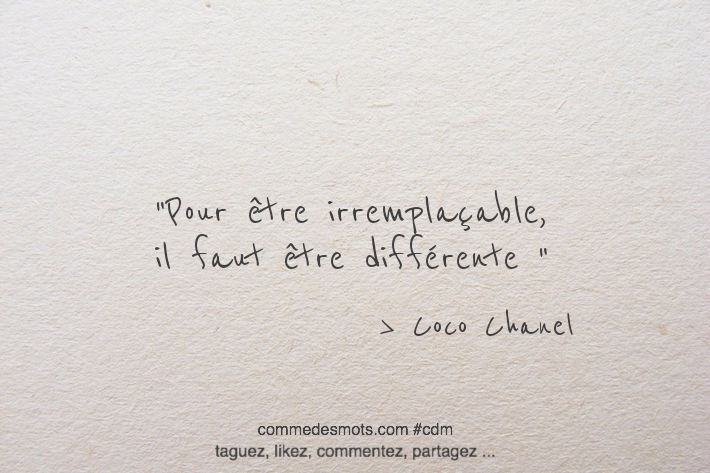 "Pour être irremplaçable,
il faut être différente "
> Coco Chanel
commedesmots.com #cdm
taguez, likez, commentez, partagez ...